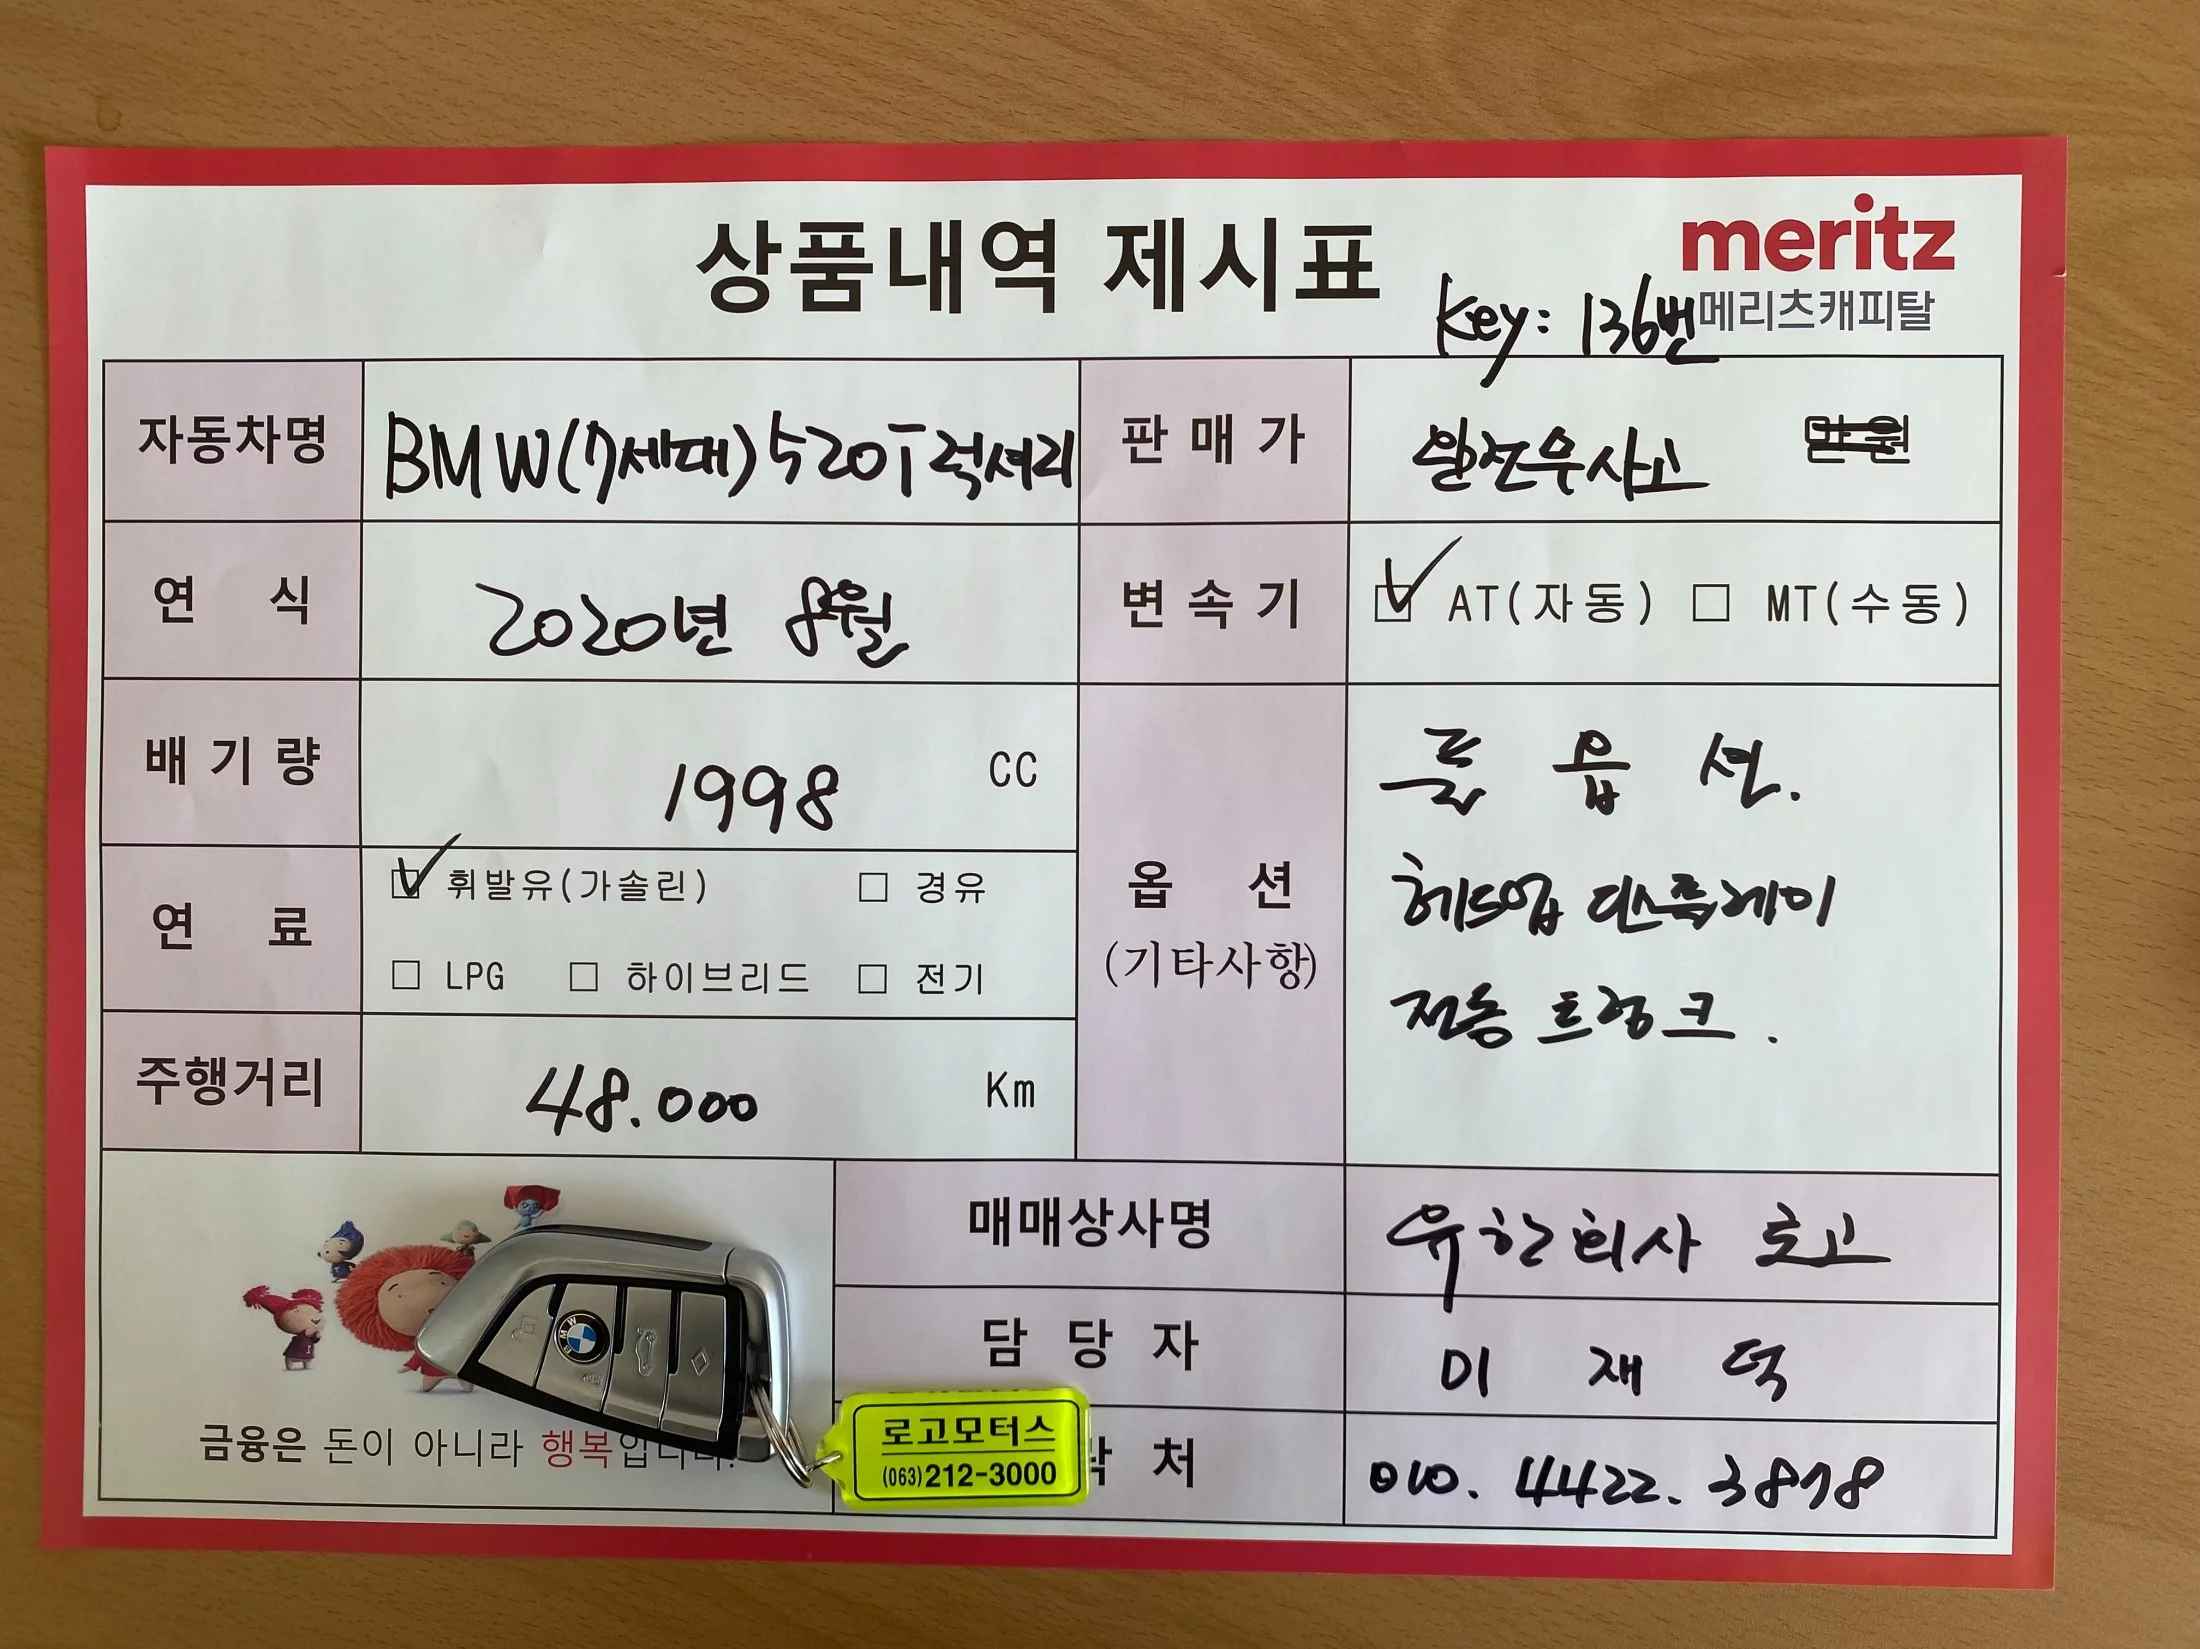 상품내역 제시표
meritz
메리츠캐피탈
Key: 136번
자동차명
BMW(7세대) 520i 럭셔리
판매가
완전무사고 만원
연 식
2020년 8월
변속기
AT(자동) MT(수동)
배기량
1998 CC
연 료
휘발유(가솔린) 경유
LPG 하이브리드 전기
옵 션
(기타사항)
풀 옵 션.
헤드업 디스플레이
전동 트렁크.
주행거리
48.000 Km
매매상사명
유한회사 로고
담 당 자
이 재 덕
락 처
010. 4422. 3878
금융은 돈이 아니라 행복입니다.
로고모터스
(063)212-3000